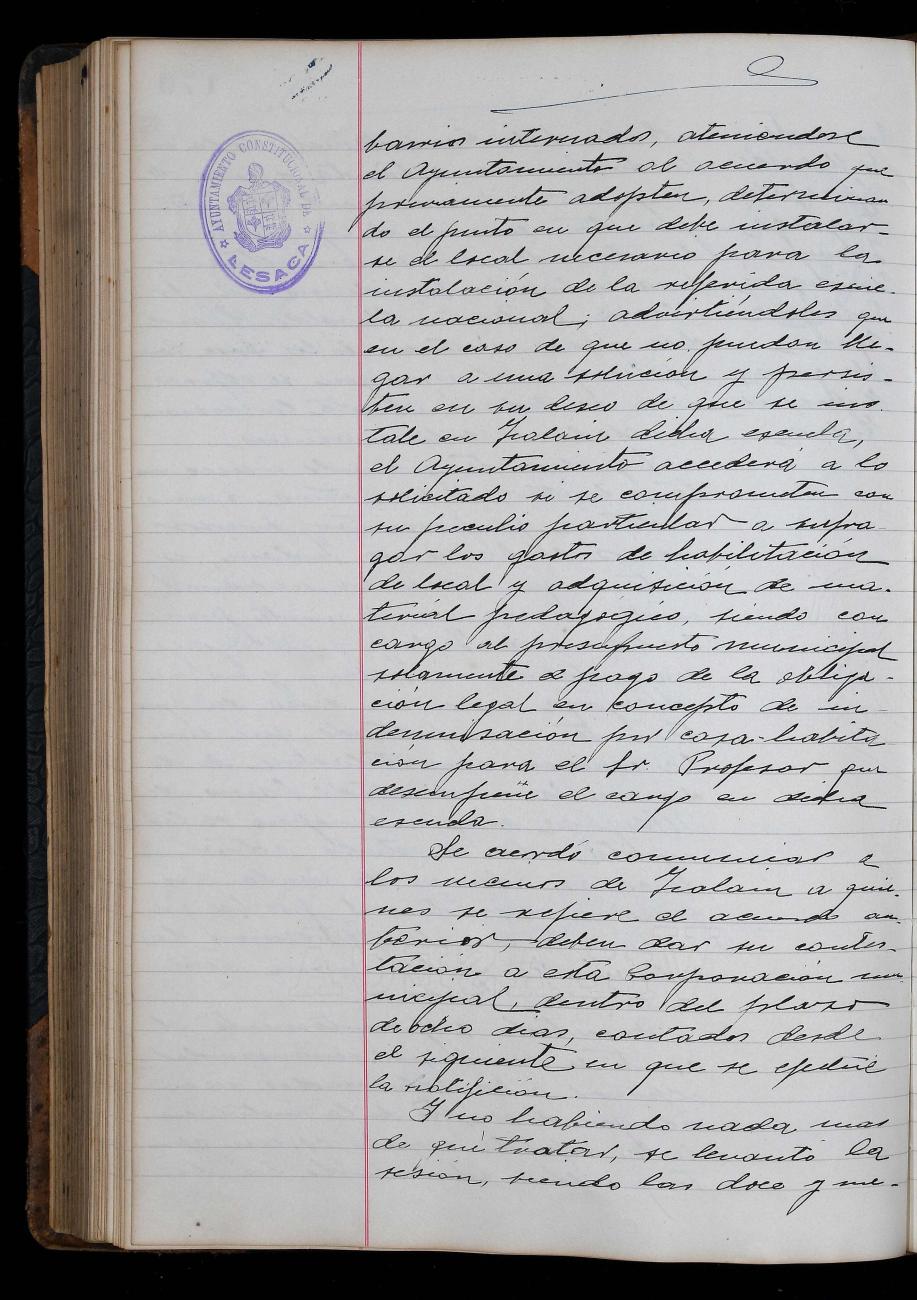 AYUNTAMIENTO CONSTITUCIONAL DE
LESACA
barrios internados, ateniendose
el Ayuntamiento al acuerdo que
previamente adopten, determinan
do el punto en que debe instalar-
se el local necesario para la
instalación de la referida escue-
la nacional; advirtiéndoles que
en el caso de que no puedan lle-
gar a una solución y persis-
ten en su deseo de que se ins
tale en Zalain dicha escuela,
el Ayuntamiento accederá a lo
solicitado si se comprometen con
su peculio particular a sufra-
gar los gastos de habilitación
de local y adquisición de ma-
terial pedagógico, siendo con
cargo al presupuesto municipal
solamente el pago de la obliga-
ción legal en concepto de in-
demnisación por casa-habita
ción para el Sr. Profesor que
desempeñe el cargo en dicha
escuela.
Se acordó comunicar a
los vecinos de Zalain a quie-
nes se refiere el acuerdo an-
terior, deben dar su contes-
tación a esta Corporación mu-
nicipal, dentro del plazo
de ocho dias, contados desde
el siguiente en que se efectúe
la notifición.
Y no habiendo nada mas
de que tratar, se levantó la
sesión, siendo las doce y me-